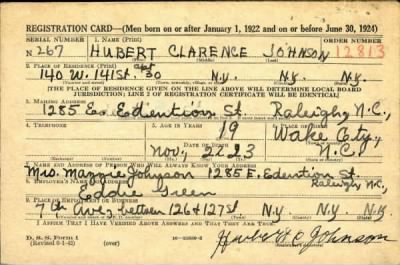 REGISTRATION CARD—(Men born on or after January 1, 1922 and on or before June 30, 1924)
SERIAL NUMBER 1. NAME (Print) ORDER NUMBER
N 267 HUBERT CLARENCE JOHNSON 12813
2. PLACE OF RESIDENCE (Print)
140 W. 141 St. apt 30 N.Y. N.Y. N.Y.
[THE PLACE OF RESIDENCE GIVEN ON THE LINE ABOVE WILL DETERMINE LOCAL BOARD
JURISDICTION; LINE 2 OF REGISTRATION CERTIFICATE WILL BE IDENTICAL]
3. MAILING ADDRESS
1285 E. Edention St. Raleigh, N.C.,
4. TELEPHONE 5. AGE IN YEARS
19 Wake
DATE OF BIRTH
Nov, 2 23 N.C.
NAME AND ADDRESS OF PERSON WHO WILL ALWAYS KNOW YOUR ADDRESS
Mrs. Maggie Johnson 1285 E. Edention St.
EMPLOYER'S NAME AND ADDRESS Raleigh, N.C.
Eddie Green
PLACE OF EMPLOYMENT OR BUSINESS
7th Ave, bettsen 126 & 127 St N.Y. N.Y. N.Y.
I AFFIRM THAT I HAVE VERIFIED ABOVE ANSWERS AND THAT THEY ARE TRUE.
D. S. S. Form 1
(Revised 6-1-42) Hubert C Johnson